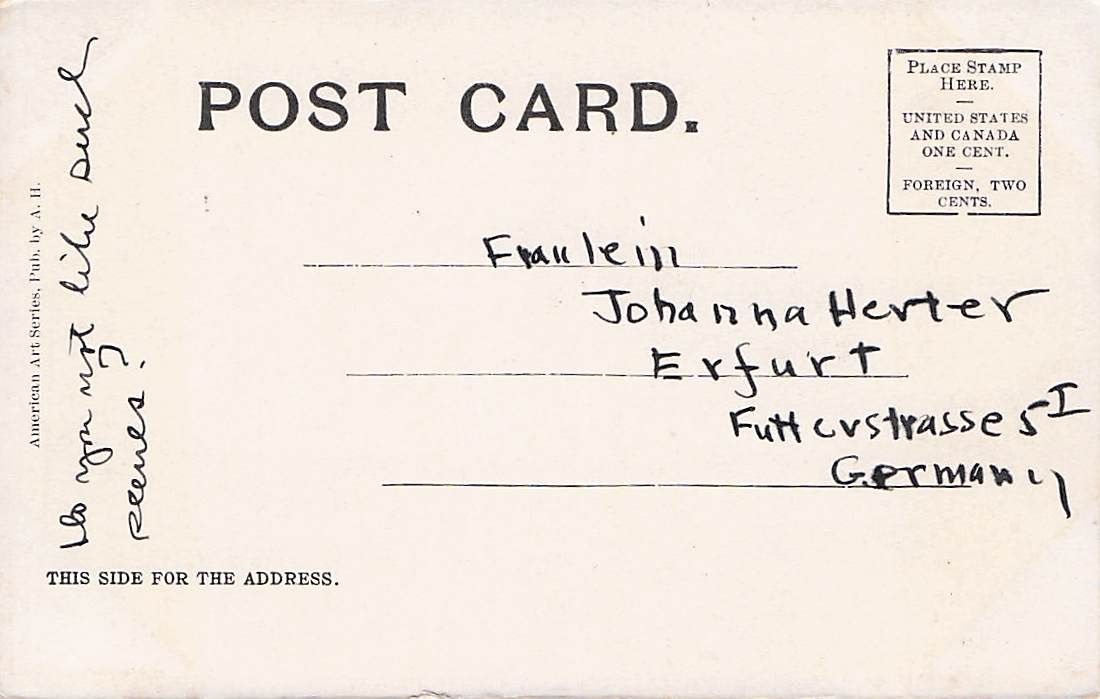 POST CARD.
PLACE STAMP
HERE.
UNITED STATES
AND CANADA
ONE CENT.
FOREIGN, TWO
CENTS.
Fraulein
Johanna Herter
Erfurt
Futterstrasse 5 I
Germany
American Art Series, Pub. by A. H.
Do you not like such
scenes.
THIS SIDE FOR THE ADDRESS.